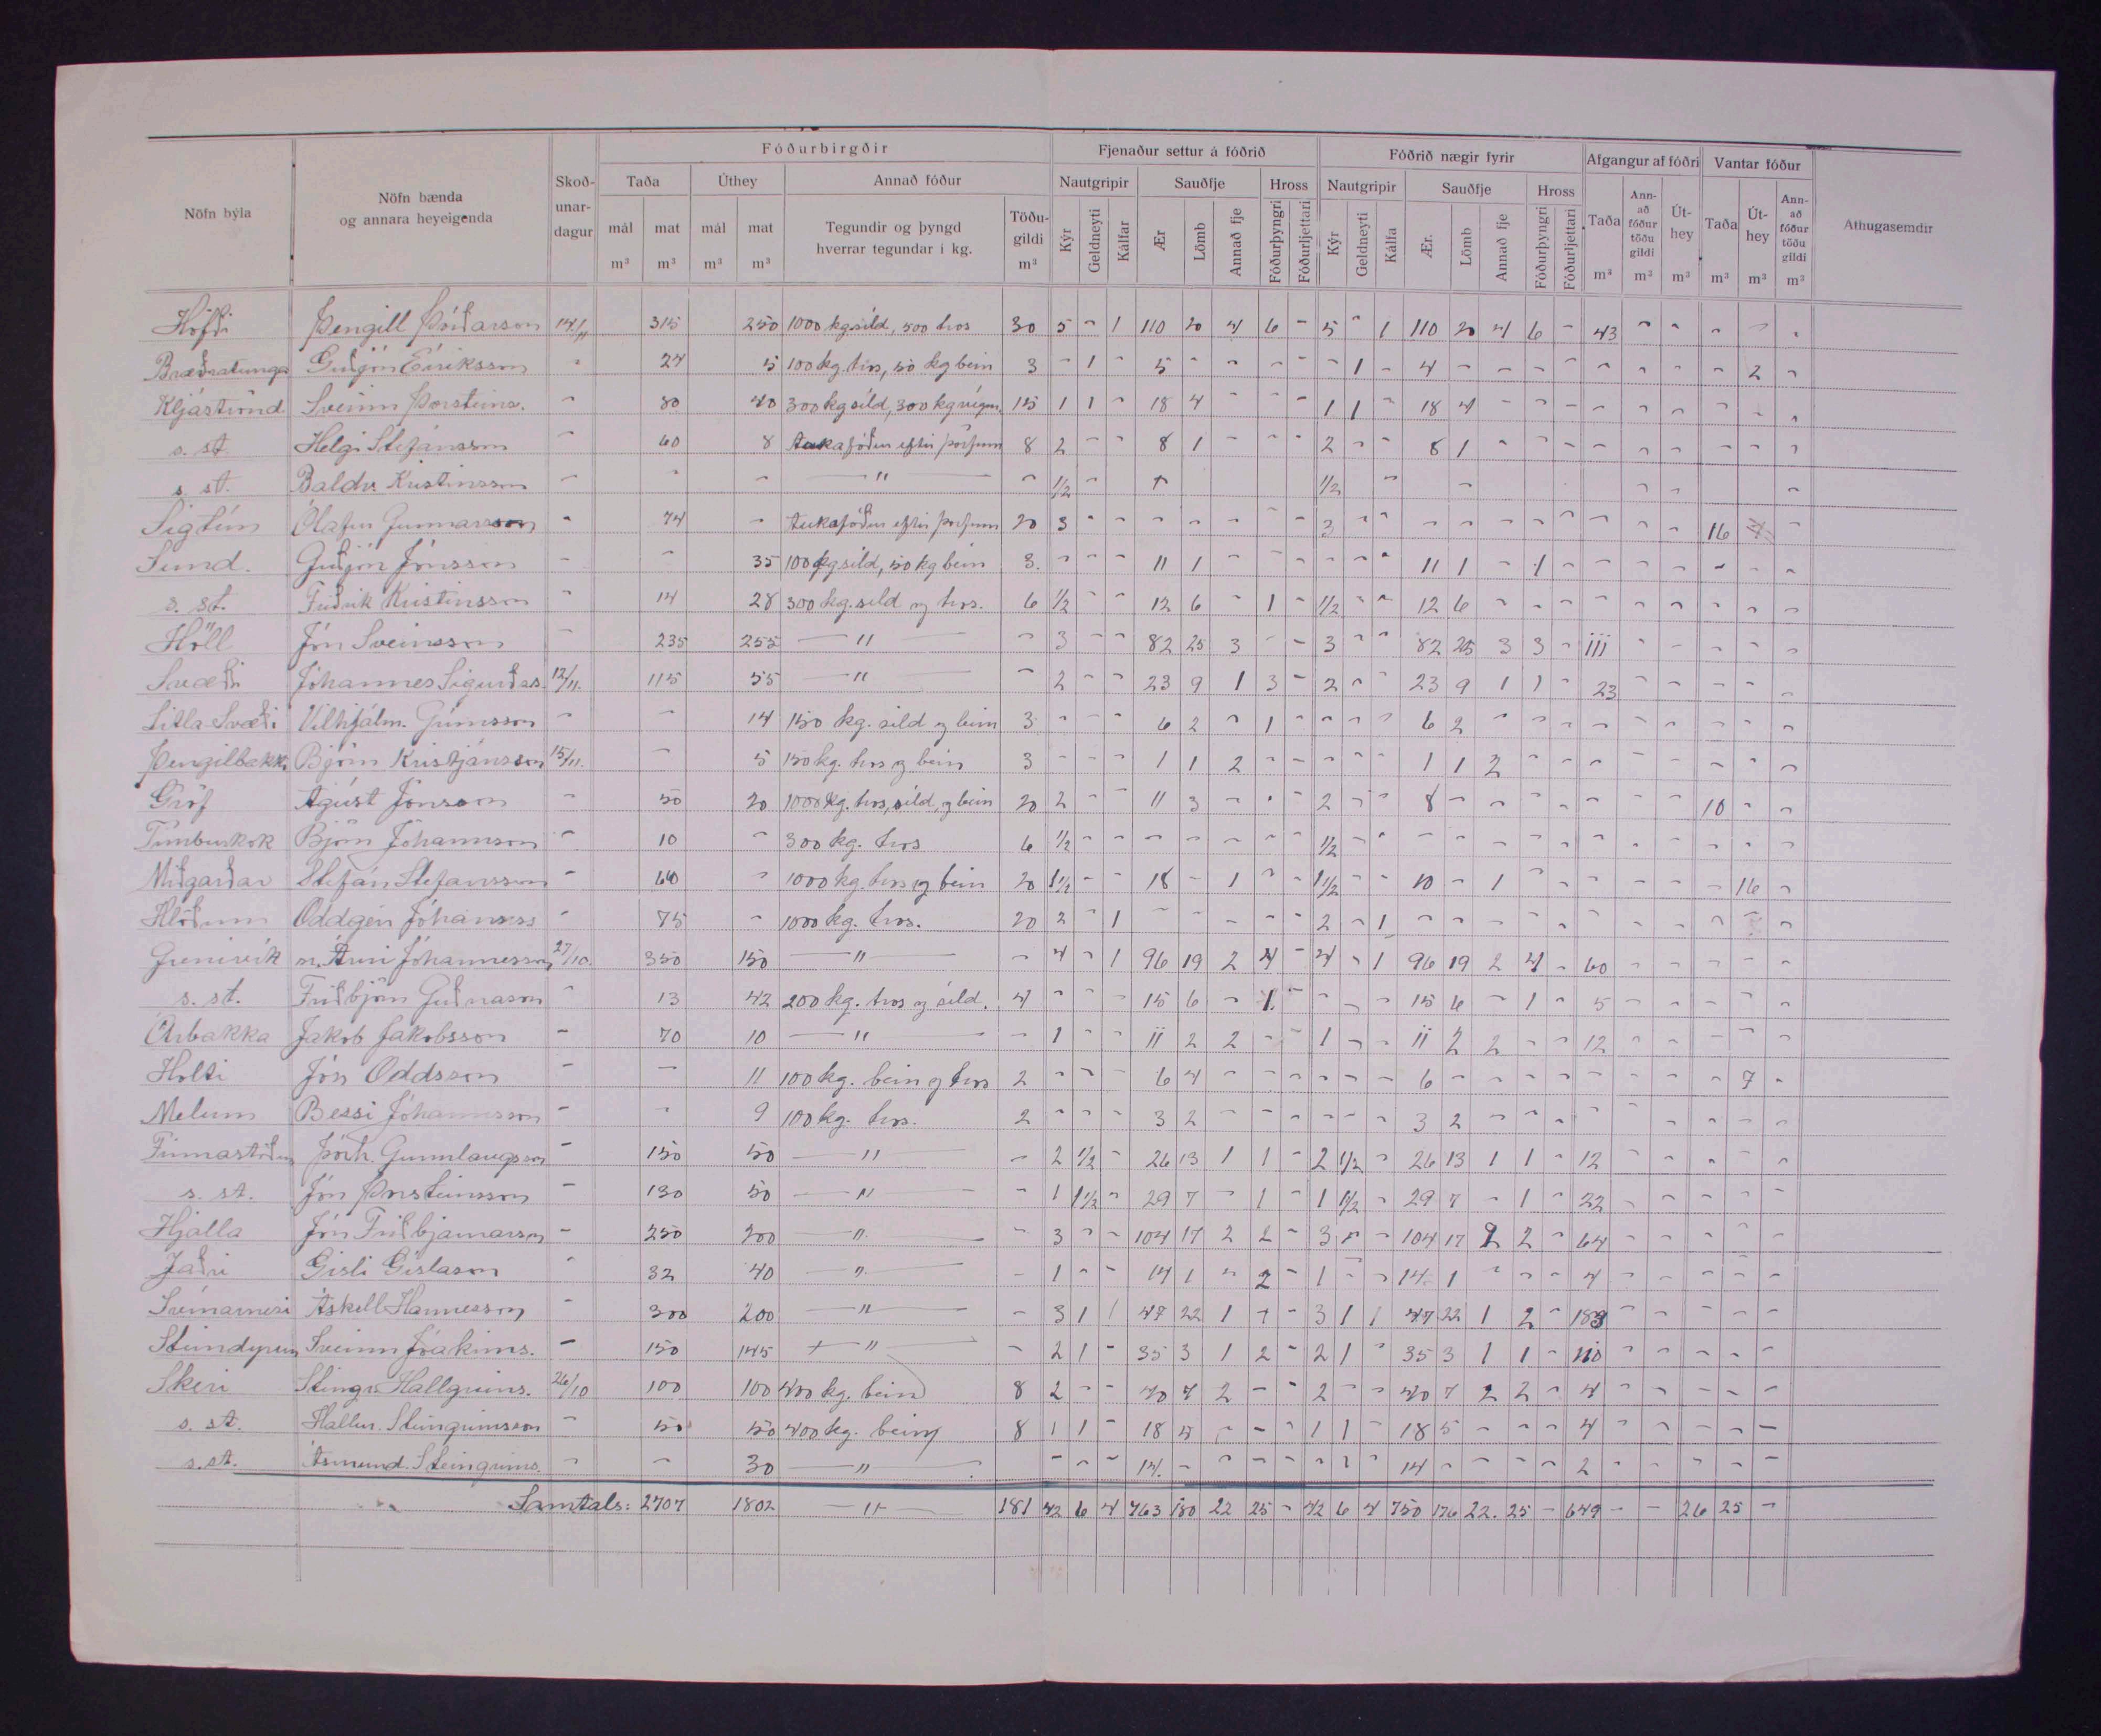 Fóðurbirgðir Fjenaður settur á fóðrið Fóðrið nægir fyrir Afgangur af fóðri Vantar fóður
Nöfn býla Nöfn bænda og annara heyeigenda Skoð-unar-dagur Taða Úthey Annað fóður Nautgripir Sauðfje Hross Nautgripir Sauðfje Hross Athugasemdir
mál m³ mat m³ mál m³ mat m³ Tegundir og þyngd hverrar tegundar í kg. Töðu-gildi m³ Kýr Geldneyti Kálfar Ær Lömb Annað fje Fóðurþyngri Fóðurljettari Kýr Geldneyti Kálfa Ær. Lömb Annað fje Fóðurþyngri Fóðurljettari Taða m³ Ann-að fóður töðu gildi m³ Út-hey m³ Taða m³ Út-hey m³ Ann-að fóður töðu gildi m³
Höfði Þengill Þórðarson 14/11 315 250 1000 kg síld, 500 tros 30 5 - 1 110 20 4 6 - 5 - 1 110 20 4 6 - 43
Bræðratunga Guðjón Eiríksson - 24 5 100 kg. tros, 50 kg bein 3 - 1 - 5 - - - - - 1 - 4 - - - - - - - - 2 -
Kljáströnd Sveinn Þorsteins. - 80 40 300 kg síld, 300 kg 15 1 1 - 18 4 - - - 1 1 - 18 4
s. st. Helgi Stefánsson - 60 8 Aukafóður eftir þörfum 8 2 - - 8 1 - - - 2 - - 8 1
s. st. Baldv. Kristinsson - - - " - 1/2 - 1/2
Sigtún Ólafur Gunnarsson - 74 - Aukafóður eftir þörfum 20 3 - - - - - - - 3 - - - - - - - - - - 16
Sund. Guðjón Jónsson - - 35 100 kg síld, 50 kg bein 3. - - - 11 1 - - - - - - 11 1 - 1
s. st. Friðrik Kristinsson - 14 28 300 kg. síld og tros. 6 1/2 - - 12 6 - 1 - 1/2 - - 12 6
Höll Jón Sveinsson - 235 255 " - 3 - - 82 25 3 - - 3 - - 82 25 3 3 - 111
Svæði Jóhannes Sigurðss. 12/11. 115 55 " - 2 - - 23 9 1 3 - 2 - - 23 9 1 1 - 23
Litla-Svæði Vilhjálm. Grímsson - - 14 150 kg. síld og bein 3 - - - 6 2 - 1 - - - - 6 2
Þengilbakk. Björn Kristjánsson 15/11. - 5 150 kg. tros og bein 3 - - - 1 1 2 - - - - - 1 1 2
Gröf Ágúst Jónsson - 50 20 1000 kg. tros, síld, og bein 20 2 - - 11 3 - - - 2 - - 8 - - - - - - - 10 - -
Björn Jóhannsson - 10 - 300 kg. tros 6 1/2 - - - - - - - 1/2
Miðgarðar Stefán Stefánsson - 60 - 1000 kg. tros og bein 20 1 1/2 - - 18 - 1 - - 1 1/2 - - 10 - 1 - - - - - - 16 -
Hlöðum Oddgeir Jóhannss - 75 - 1000 kg. tros. 20 2 - 1 - - - - - 2 - 1
Grenivík Árni Jóhannesson 27/10. 350 150 " - 4 - 1 96 19 2 4 - 4 - 1 96 19 2 4 - 60
s. st. Friðbjörn Guðnason - 13 42 200 kg. tros og síld. 4 - - - 15 6 - 1. - - - - 15 6 - 1 - 5
Árbakka Jakob Jakobsson - 70 10 " - 1 - - 11 2 2 - - 1 - - 11 2 2 - - 12
Holti Jón Oddsson - - 11 100 kg. bein og tros 2 - - - 6 4 - - - - - - 6 - - - - - - - - 7 -
Melum Bessi Jóhannsson - - 9 100 kg. tros. 2 - - - 3 2 - - - - - - 3 2
Finnastöðum Þórh. Gunnlaugsson - 150 50 " - 2 1/2 - 26 13 1 1 - 2 1/2 - 26 13 1 1 - 12
s. st. Jón Þorsteinsson - 130 50 " - 1 1 1/2 - 29 7 - 1 - 1 1 1/2 - 29 7 - 1 - 22
Hjalla Jón Friðbjarnarson - 250 200 " - 3 - - 104 17 2 2 - 3 - - 104 17 2 2 - 64
Jaðri Gísli Gíslason - 32 40 " - 1 - - 14 1 - 2 - 1 - - 14 1 - - - 4
Áskell Hannesson - 300 200 " - 3 1 1 47 22 1 - 3 1 1 47 22 1 2 - 183
Steindyrum Sveinn Jóakims. - 150 145 " - 2 1 - 35 3 1 2 - 2 1 - 35 3 1 1
Skeri Steingr. Hallgríms. 26/10 100 100 400 kg. bein 8 2 - - 40 7 2 - - 2 - - 40 7 2 2 - 4
s. st. Hallur. Steingrímsson - 50 50 400 kg. bein 8 1 1 - 18 5 - - - 1 1 - 18 5 - - - 4
s. st. Ásmund. Steingríms. - - 30 " - - - 14. - - - - - 14 - - - - 2
Samtals: 2707 1802 " 181 42 6 4 763 180 22 25 - 42 6 4 750 176 22. 25 - 649 - - 26 25 -